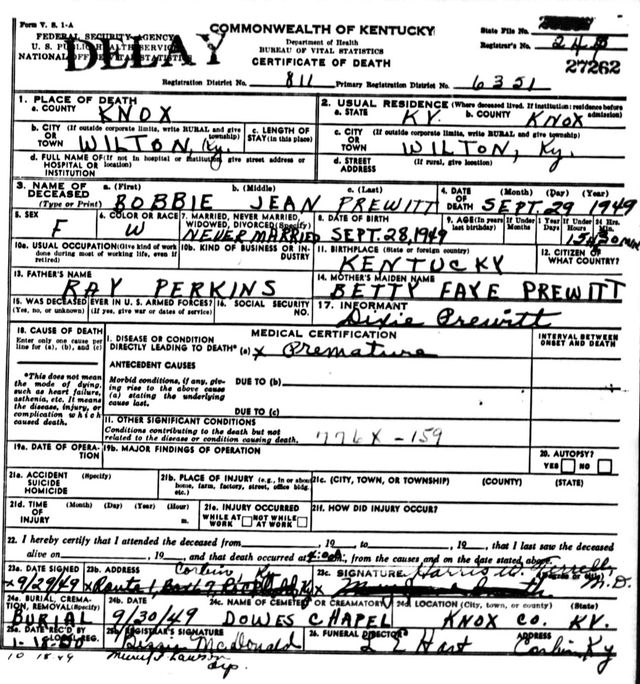 Form V. S. 1-A
FEDERAL SECURITY AGENCY
U. S. PUBLIC HEALTH SERVICE
NATIONAL OFFICE VITAL STATISTICS
DELAY
COMMONWEALTH OF KENTUCKY
Department of Health
BUREAU OF VITAL STATISTICS
CERTIFICATE OF DEATH
State File No.
Registrar's No. 248
27262
Registration District No. 811 Primary Registration District No. 6351
1. PLACE OF DEATH
a. COUNTY KNOX
2. USUAL RESIDENCE (Where deceased lived. If institution: residence before admission)
a. STATE KY. b. COUNTY KNOX
b. CITY (If outside corporate limits, write RURAL and give township)
OR TOWN WILTON, Ky.
c. LENGTH OF STAY (in this place)
c. CITY (If outside corporate limits, write RURAL and give township)
OR TOWN WILTON, Ky.
d. FULL NAME OF (If not in hospital or institution, give street address or location)
HOSPITAL OR INSTITUTION
d. STREET ADDRESS (If rural, give location)
3. NAME OF DECEASED (Type or Print)
a. (First) b. (Middle) c. (Last)
BOBBIE JEAN PREWITT
4. DATE OF DEATH (Month) (Day) (Year)
SEPT. 29 1949
5. SEX
F
6. COLOR OR RACE
W
7. MARRIED, NEVER MARRIED, WIDOWED, DIVORCED (Specify)
NEVER MARRIED
8. DATE OF BIRTH
SEPT. 28, 1949
9. AGE (In years last birthday) If Under 1 Year Months Days If Under 24 Hrs. Hours Min.
10a. USUAL OCCUPATION (Give kind of work done during most of working life, even if retired)
10b. KIND OF BUSINESS OR INDUSTRY
11. BIRTHPLACE (State or foreign country)
KENTUCKY
12. CITIZEN OF WHAT COUNTRY?
13. FATHER'S NAME
RAY PERKINS
14. MOTHER'S MAIDEN NAME
BETTY FAYE PREWITT
15. WAS DECEASED EVER IN U. S. ARMED FORCES?
(Yes, no, or unknown) (If yes, give war or dates of service)
16. SOCIAL SECURITY NO.
17. INFORMANT
Dixie Prewitt
18. CAUSE OF DEATH
Enter only one cause per line for (a), (b), and (c)
MEDICAL CERTIFICATION
INTERVAL BETWEEN ONSET AND DEATH
I. DISEASE OR CONDITION
DIRECTLY LEADING TO DEATH* (a) x Premature
*This does not mean the mode of dying, such as heart failure, asthenia, etc. It means the disease, injury, or complication which caused death.
ANTECEDENT CAUSES
Morbid conditions, if any, giving rise to the above cause (a) stating the underlying cause last.
DUE TO (b)
DUE TO (c)
11. OTHER SIGNIFICANT CONDITIONS
Conditions contributing to the death but not related to the disease or condition causing death.
776X-159
19a. DATE OF OPERATION
19b. MAJOR FINDINGS OF OPERATION
20. AUTOPSY?
YES NO
21a. ACCIDENT SUICIDE HOMICIDE (Specify)
21b. PLACE OF INJURY (e.g., in or about home, farm, factory, street, office bldg. etc.)
21c. (CITY, TOWN, OR TOWNSHIP) (COUNTY) (STATE)
21d. TIME OF INJURY (Month) (Day) (Year) (Hour) m.
21e. INJURY OCCURRED
WHILE AT WORK NOT WHILE AT WORK
21f. HOW DID INJURY OCCUR?
22. I hereby certify that I attended the deceased from , 19 to , 19 , that I last saw the deceased
alive on , 19 , and that death occurred at m., from the causes and on the date stated above.
23a. DATE SIGNED
x9/29/49
23b. ADDRESS
Corbin Ky
Route 1 Box
23c. SIGNATURE
M.D.
24a. BURIAL, CREMATION, REMOVAL (Specify)
BURIAL
24b. DATE
9/30/49
24c. NAME OF CEMETERY OR CREMATORY
DOWES CHAPEL
24d LOCATION (City, town, or county) (State)
KNOX CO. KY.
25a. DATE REC'D BY LOCAL REG.
1-18-50
10 18-49
25b. REGISTRAR'S SIGNATURE
McDonald
26. FUNERAL DIRECTOR ADDRESS
Hart Corbin Ky